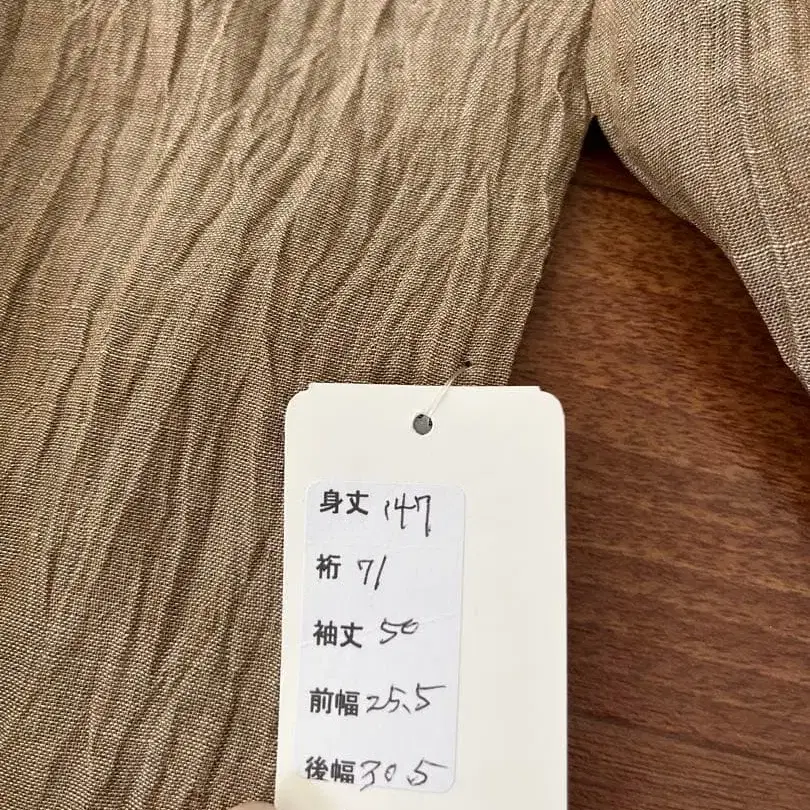 身丈 147
裄 71
袖丈 50
前幅 25.5
後幅 30.5